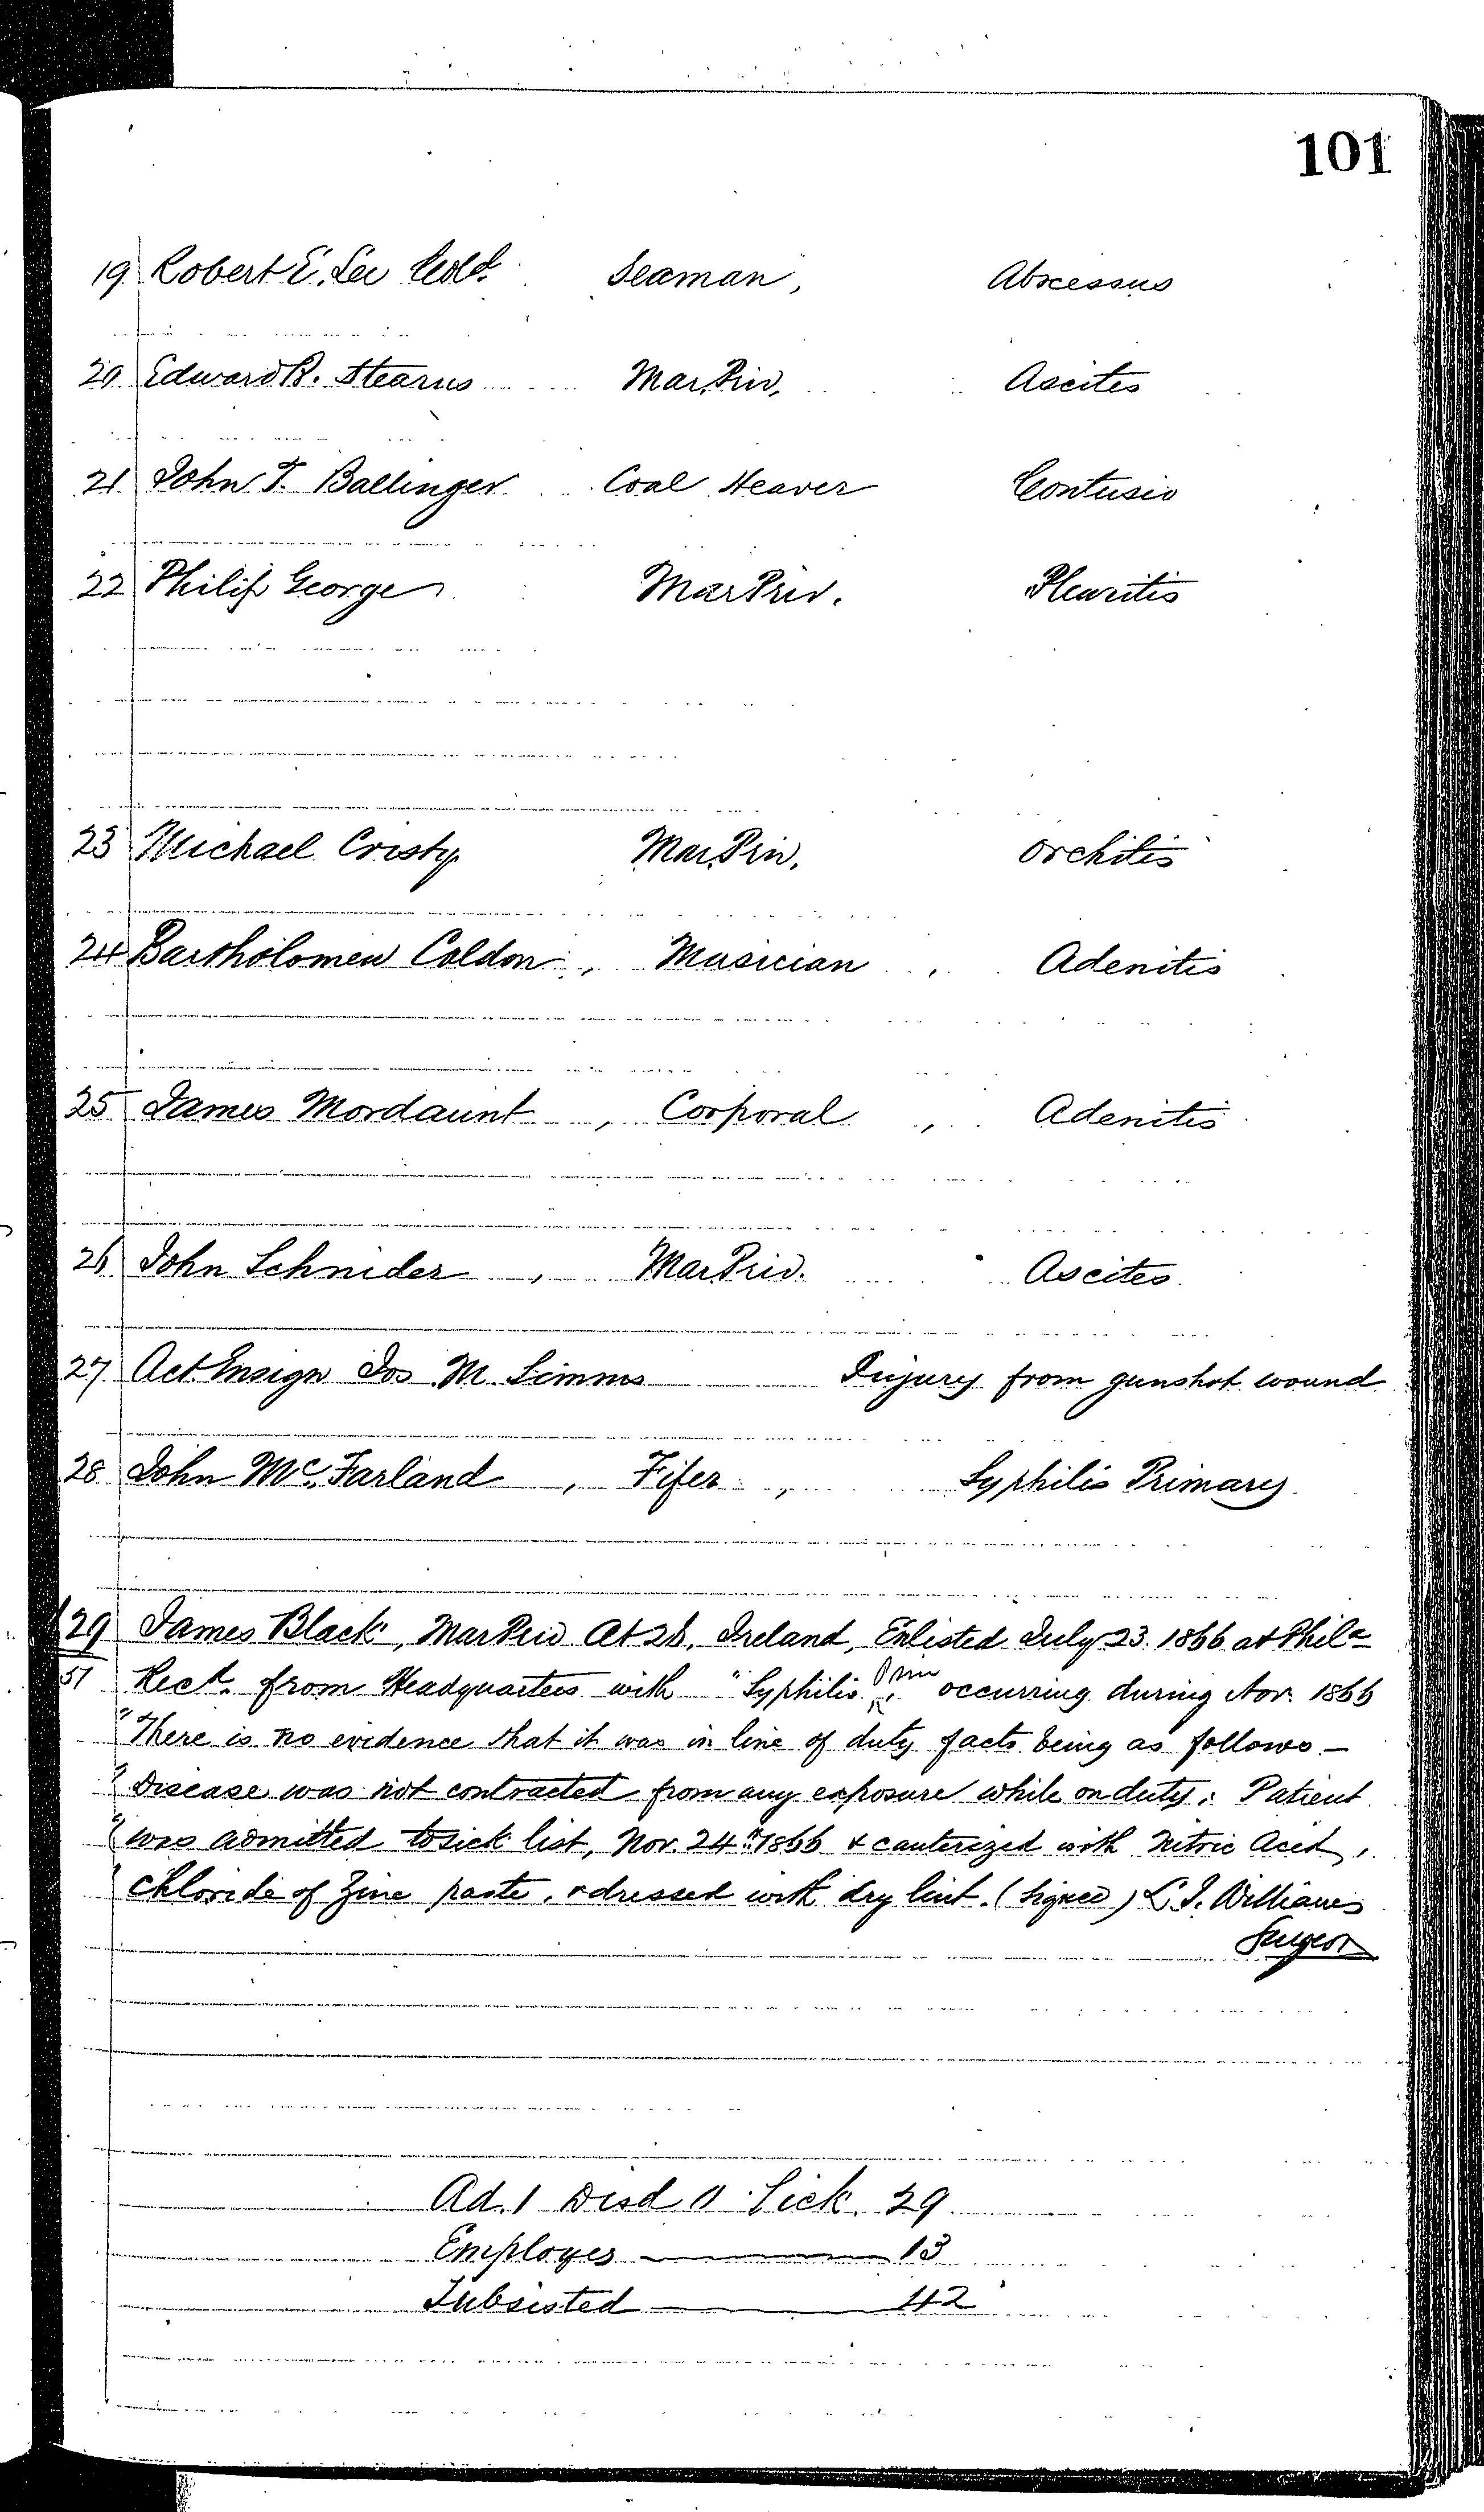 101
19 Robert E. Lee Cold. Seaman, Abscessus
20 Edward B. Stearns Mar. Priv. Ascites
21 John T. Ballinger Coal Heaver Contusio
22 Philip George Mar Priv. Pleuritis
23 Michael Cristy Mar. Priv. Orchitis
24 Bartholomew Coldon, Musician, Adenitis
25 James Mordaunt, Corporal, Adenitis
26 John Schnider, Mar Priv. Ascites
27 Act Ensign Jos M. Simms Injury from gunshot wound
28 John McFarland, Fifer, Syphilis Primary
29 James Black, Mar Priv At 26, Ireland, Enlisted July 23 1866 at Phila
51 Recd. from Headquarters with "Syphilis Prim" occurring during Nov. 1866
"There is no evidence that it was in line of duty facts being as follows —
"Disease was not contracted from any exposure while on duty. Patient
"was admitted to sick list, Nov. 24th 1866 & cauterized with Nitric Acid,
"Chloride of Zinc paste, & dressed with dry lint. (Signed) L. J. Williams
Surgeon
Ad. 1 Disd 0 Sick. 29
Employes 13
Subsisted 42